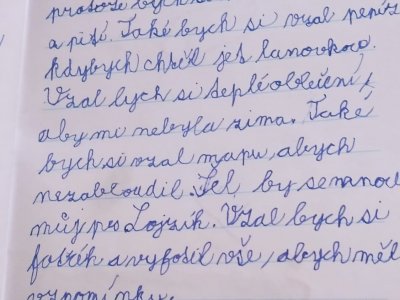 protože bych
a pití. Také bych si vzal peníze
kdybych chtěl jet lanovkou.
Vzal bych si teplé oblečení,
aby mi nebyla zima. Také
bych si vzal mapu, abych
nezabloudil. Jel by semnou
můj pes Lojzík. Vzal bych si
foťák a vyfotil vše, abych měl
vzpomínku.